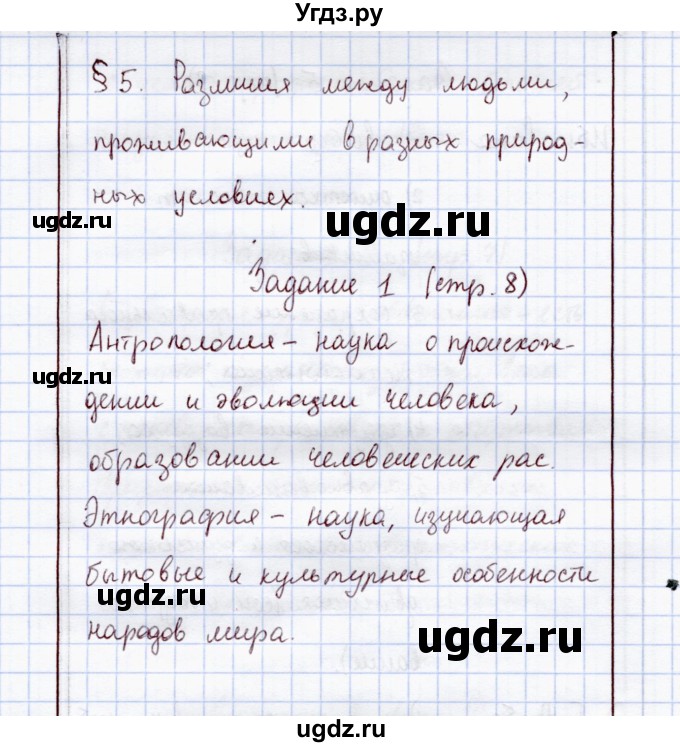 Угдз.ру
§ 5. Различия между людьми,
проживающими в разных природ-
ных условиех.
ugdz.ru
ugdz.ru
Задание 1 (стр. 8)
Антропология – наука о происхож-
ugdz.ru
дении и эволюции человека,
образовании человеческих рас.
Этнография – наука, изучающая
бытовые и культурные особенности
ugdz.ru
народов мира.
ugdz.ru
ugdz.ru